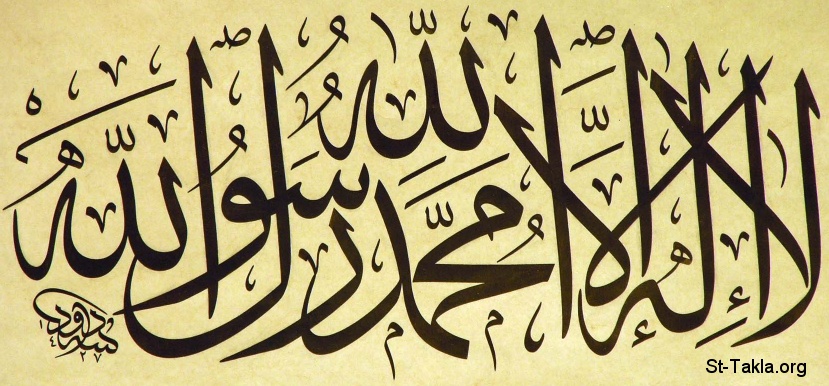 لا إله إلا الله محمد رسول الله
داود
١٤٢٧
St-Takla.org